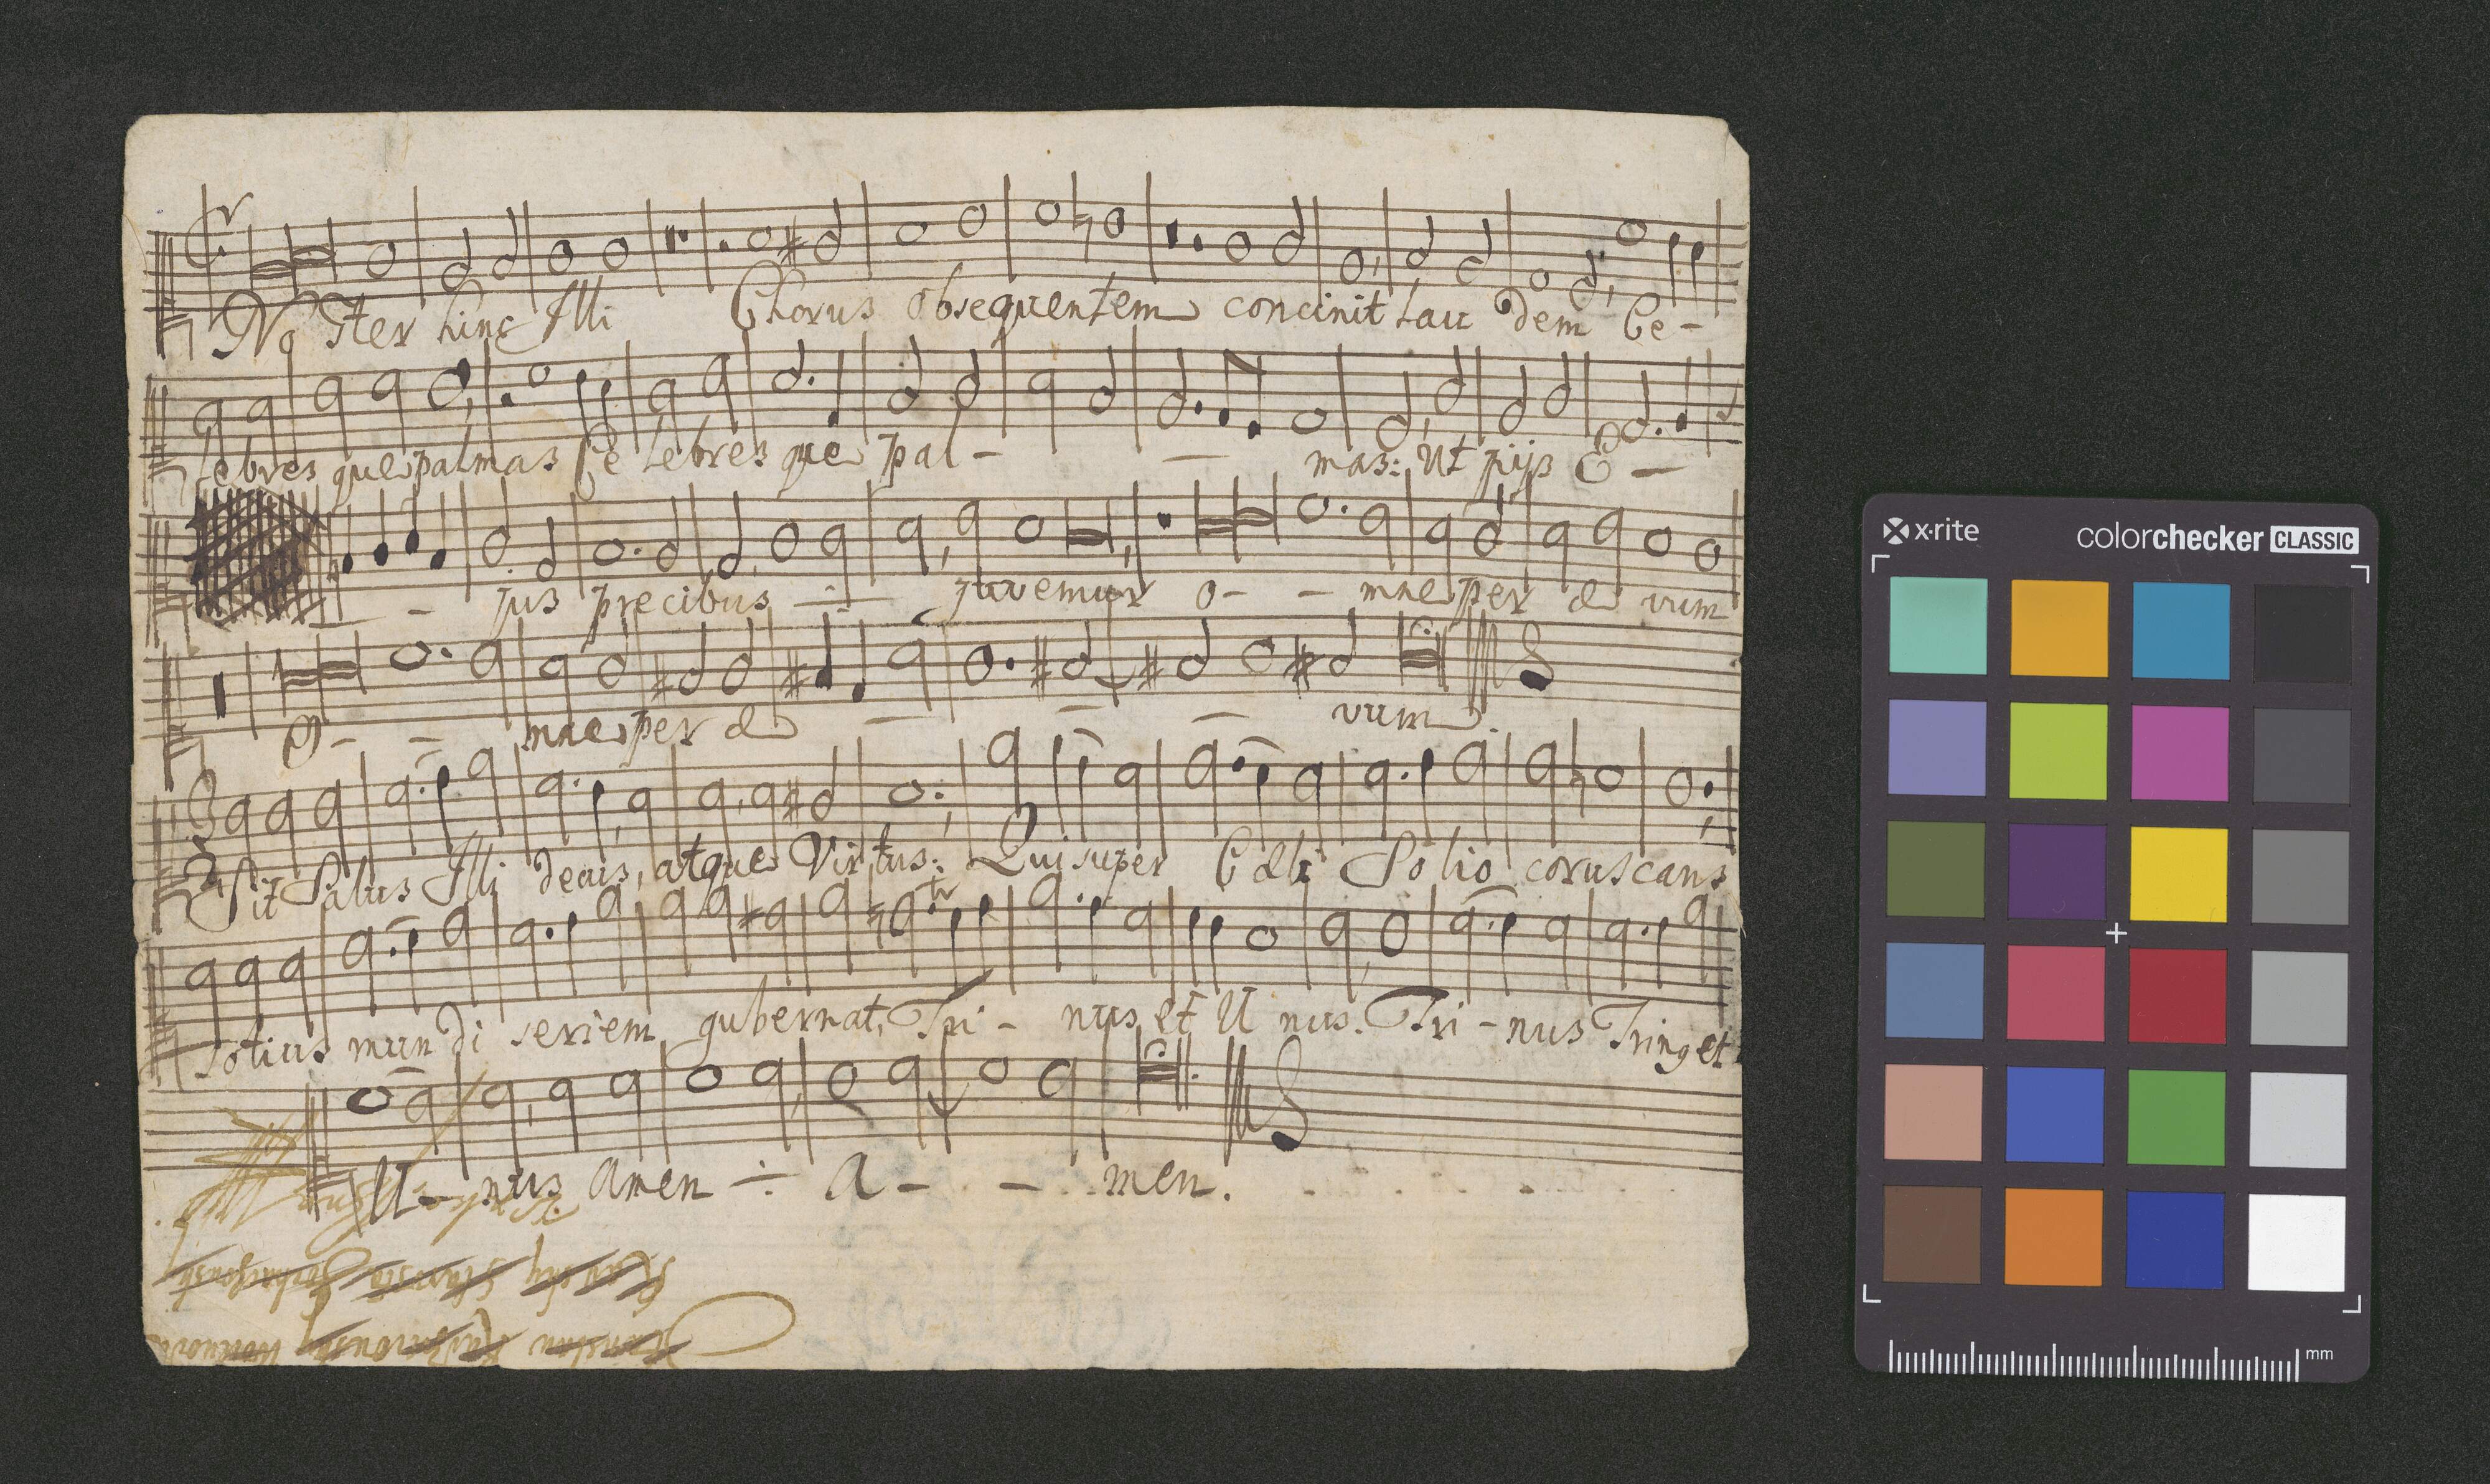 Noster hinc Illi Chorus obsequentem concinit lau dem Ce-
lebres que palmas Ce lebres que pal- - mas: Ut pijs E -
- jus precibus - juvemur o- - mne per æ vum
O- - mne per æ - - - vum.
3
Sit Salus Illi decus, atque Virtus: Qui super Cæli Solio coruscans
tr
totius mun di seriem gubernat, Tri- nus et U nus. Tri-nus Trin9 et
U- nus Amen ÷ A- - men.
x·rite colorchecker CLASSIC
mm